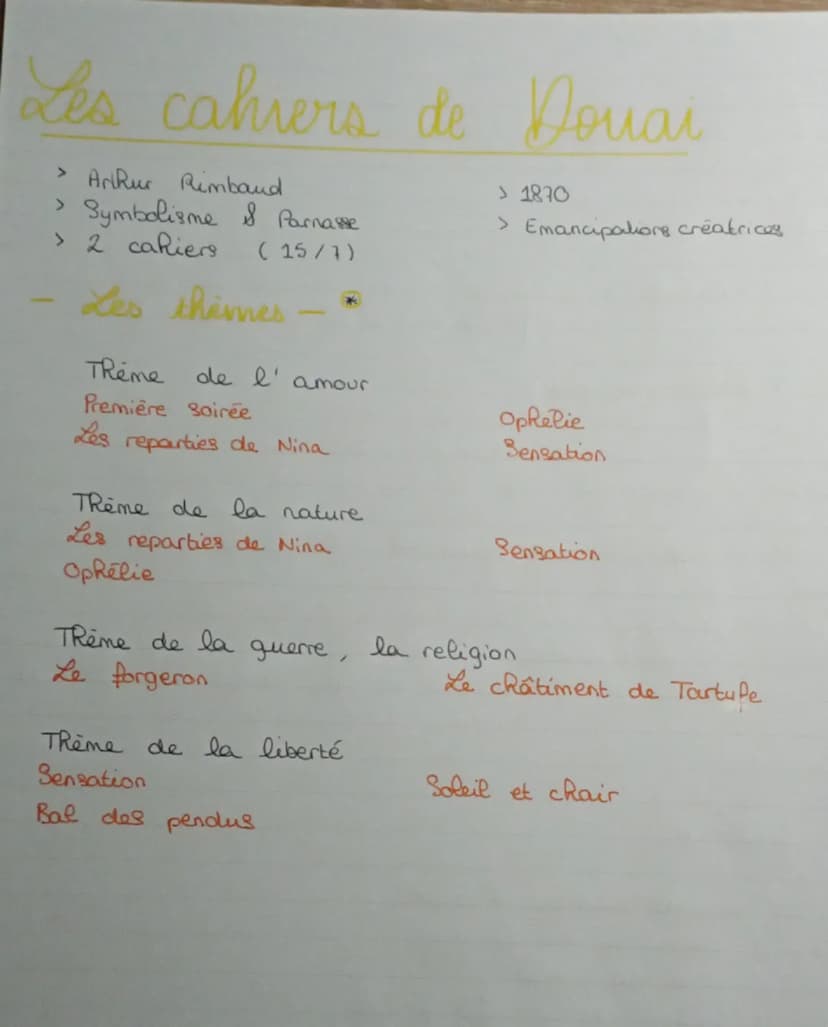 Les cahiers de Douai
> Arthur Rimbaud
> Symbolisme & Parnasse
> 2 cahiers (15/7)
> 1870
> Emancipations créatrices
- Les thèmes - *
Thème de l'amour
Première soirée
Ophélie
Les reparties de Nina
Sensation
Thème de la nature
Les reparties de Nina
Sensation
Ophélie
Thème de la guerre, la religion
Le forgeron
Le châtiment de Tartufe
Thème de la liberté
Sensation
Soleil et chair
Bal des pendus